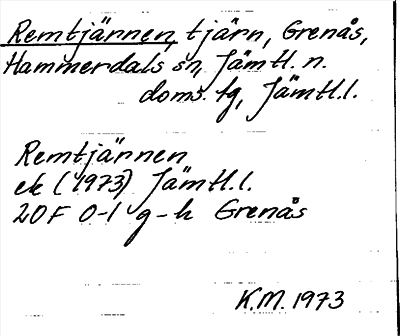 Remtjärnen, tjärn, Grenås,
Hammerdals sn, Jämtl. n.
doms. tg, Jämtl. l.
Remtjärnen
ek (1973) Jämtl. l.
20F 0-1 g-h Grenås
K.M. 1973